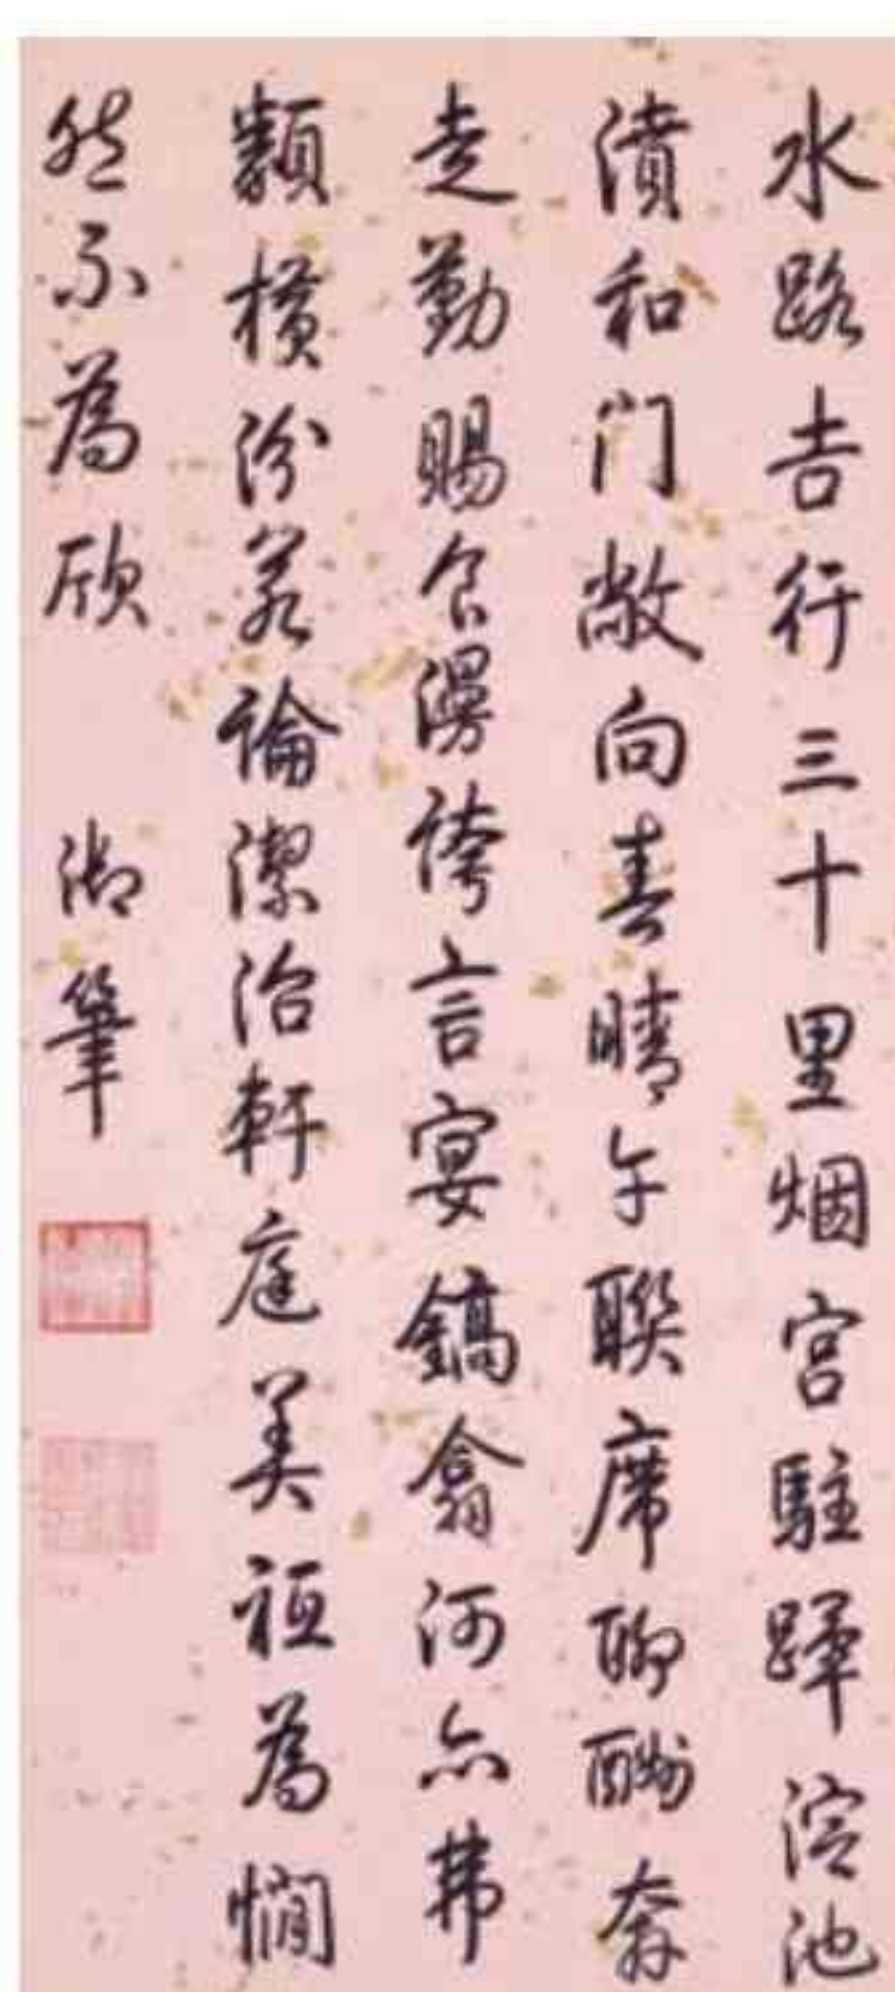 水路吉行三十里烟宫駐蹕溶池
濆和门敞向春晴午聯席聊酬奔
走勤賜食漫誇言宴鎬翕河亦弗
類橫汾若論潔治軒庭美祗為憪
然不為欣 御筆